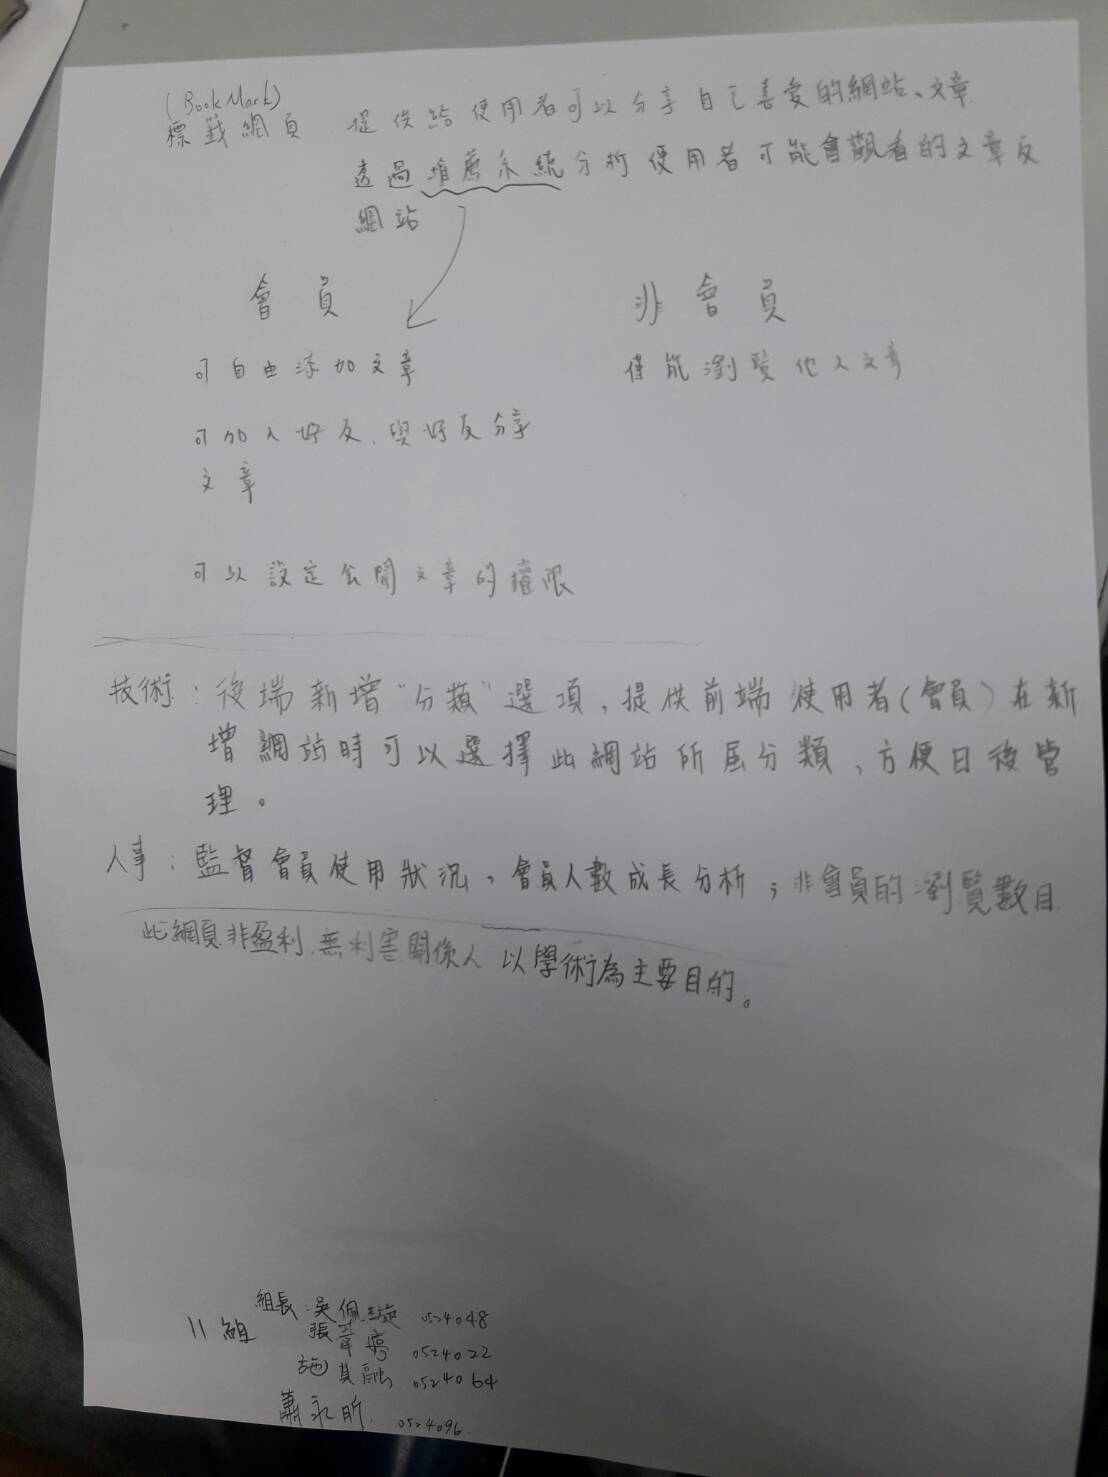 (BookMark)
標籤網頁 提供給使用者可以分享自己喜愛的網站、文章
透過推薦系統分析使用者可能會觀看的文章及
網站
會員
非會員
可自由添加文章
僅能瀏覽他人文章
可加入好友、與好友分享
文章
可以設定公開文章的權限
技術：後端新增"分類"選項，提供前端使用者(會員)在新
增網站時可以選擇此網站所屬分類，方便日後管
理。
人事：監督會員使用狀況，會員人數成長分析；非會員的瀏覽數目
此網頁非盈利、無利害關係人 以學術為主要目的。
11組
組長：吳佩璇 0524048
張葦婷 0524022
施其融 0524064
蕭永昕 0524096